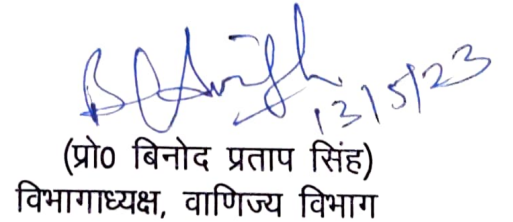 B P Singh
13/5/23
(प्रो० बिनोद प्रताप सिंह)
विभागाध्यक्ष, वाणिज्य विभाग